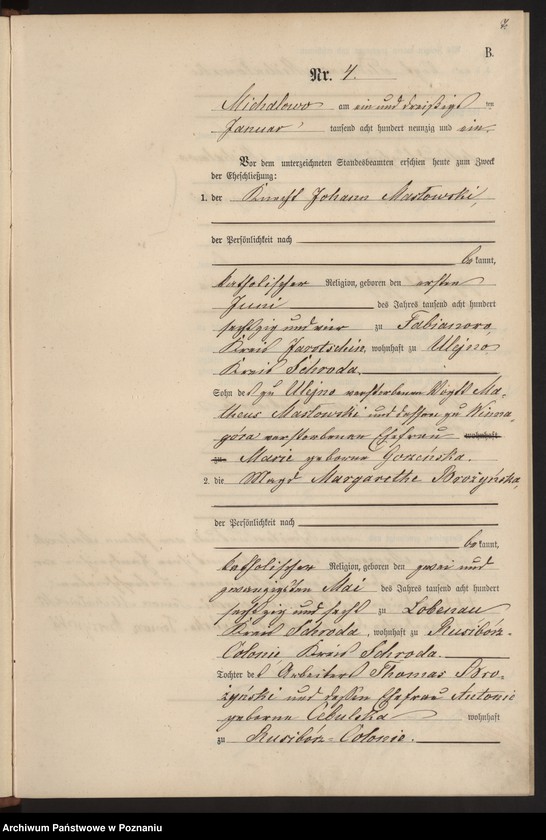 B.
Nr. 4.
Michalowo am ein und dreißigsten
Januar tausend acht hundert neunzig und ein.
Vor dem unterzeichneten Standesbeamten erschien heute zum Zweck
der Eheschließung:
1. der Knecht Johann Masłowski,
der Persönlichkeit nach
be kannt,
katholischer Religion, geboren den ersten
Juni des Jahres tausend acht hundert
sechszig und vier zu Fabianowo,
Kreis Jarotschin, wohnhaft zu Ulejno
Kreis Schroda.
Sohn des zu Ulejno verstorbenen Vogts Ma-
theus Masłowski und dessen zu Winna-
góra verstorbenen Ehefrau wohnhaft
zu Marie geborene
2. die Magd Margarethe Brożyńska,
der Persönlichkeit nach
be kannt,
katholischer Religion, geboren den zwei und
zwanzigsten Mai des Jahres tausend acht hundert
sechszig und sechs zu Lobenau
Kreis Schroda, wohnhaft zu Rusibórz-
Colonie Kreis Schroda.
Tochter des Arbeiters Thomas Bro-
żyński und dessen Ehefrau Antonie
geborene Cebulska wohnhaft
zu Rusibórz-Colonie.
Archiwum Państwowe w Poznaniu